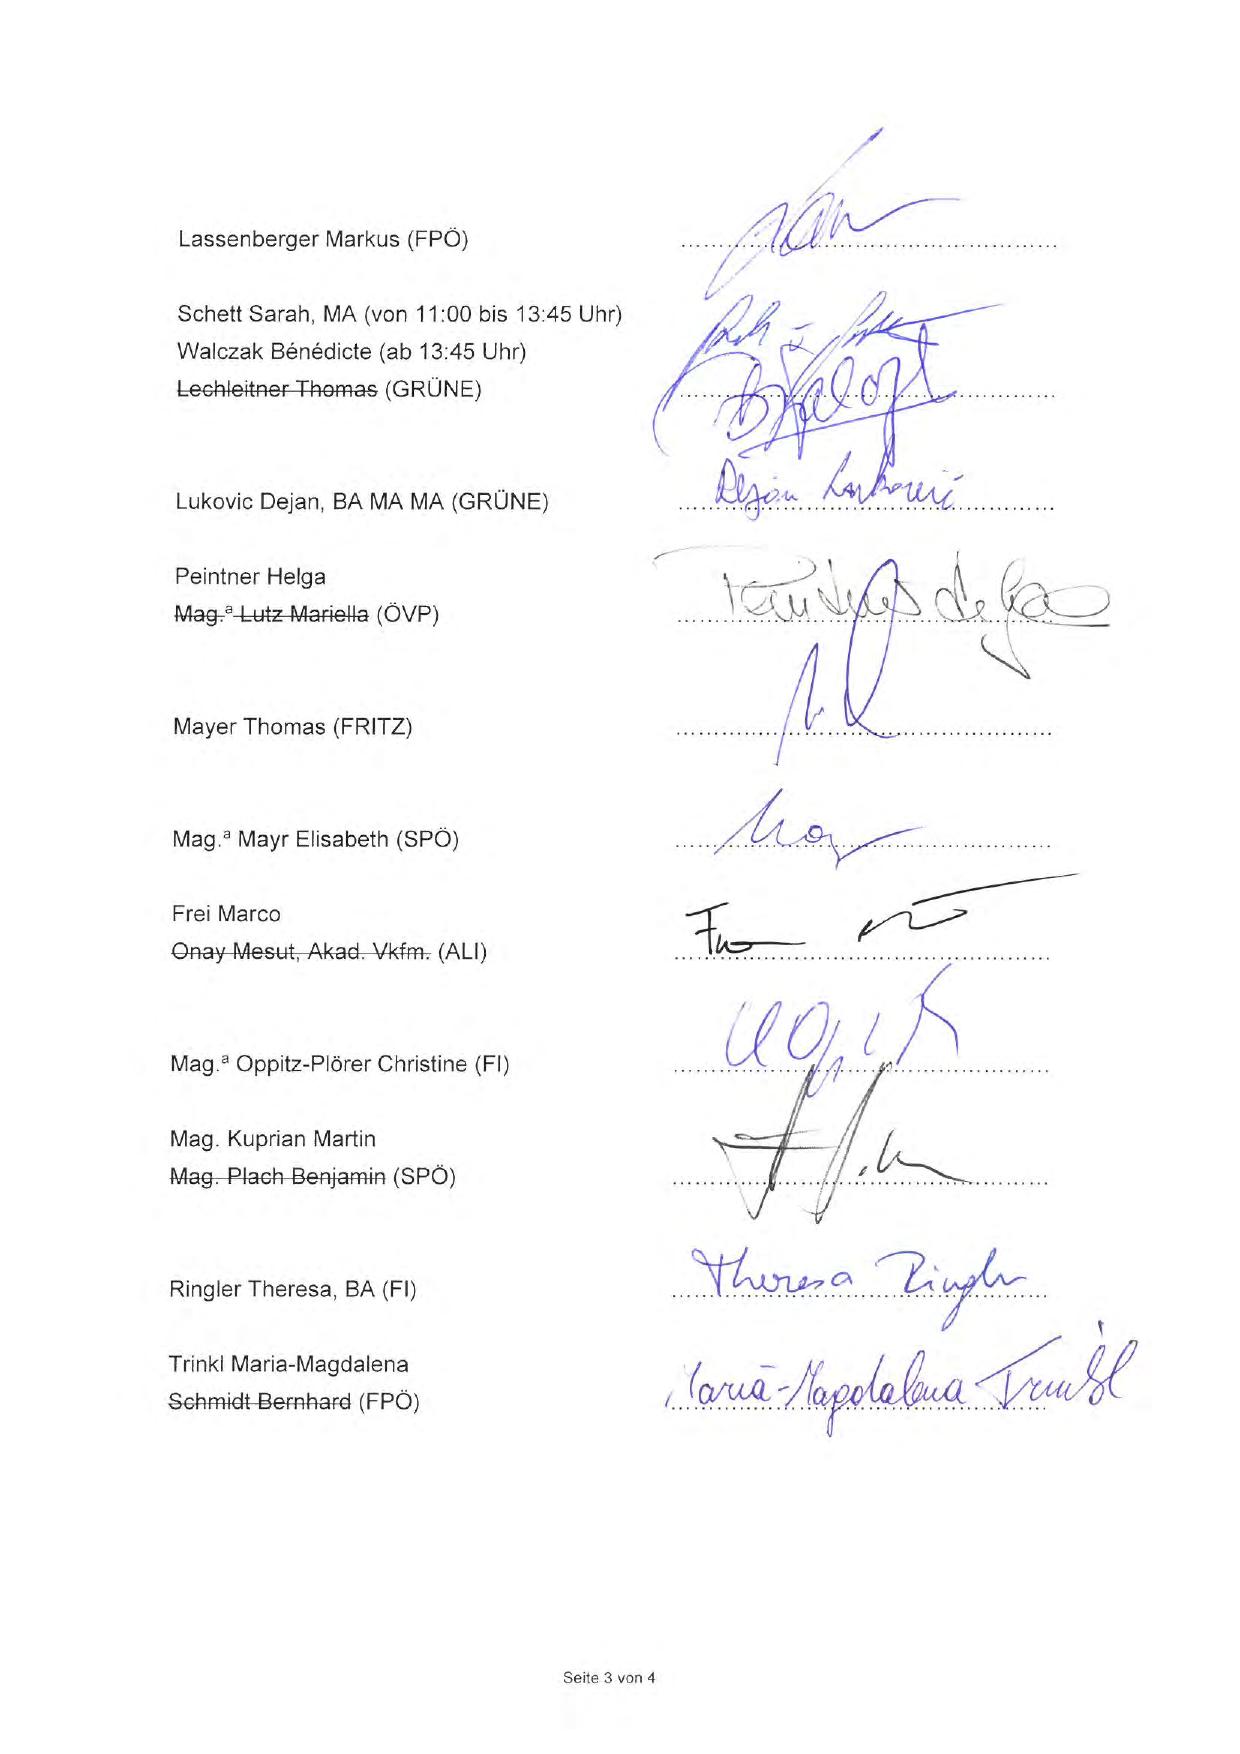 Lassenberger Markus (FPÖ)
Schett Sarah, MA (von 11:00 bis 13:45 Uhr)
Walczak Bénédicte (ab 13:45 Uhr)
Lechleitner Thomas (GRÜNE)
Lukovic Dejan, BA MA MA (GRÜNE) Dejan Luković
Peintner Helga
Mag.ª Lutz Mariella (ÖVP) Peintner Helga
Mayer Thomas (FRITZ)
Mag.ª Mayr Elisabeth (SPÖ)
Frei Marco
Onay Mesut, Akad. Vkfm. (ALI)
Mag.ª Oppitz-Plörer Christine (FI)
Mag. Kuprian Martin
Mag. Plach Benjamin (SPÖ)
Ringler Theresa, BA (FI) Theresa Ringler
Trinkl Maria-Magdalena
Schmidt Bernhard (FPÖ) Maria-Magdalena Trinkl
Seite 3 von 4